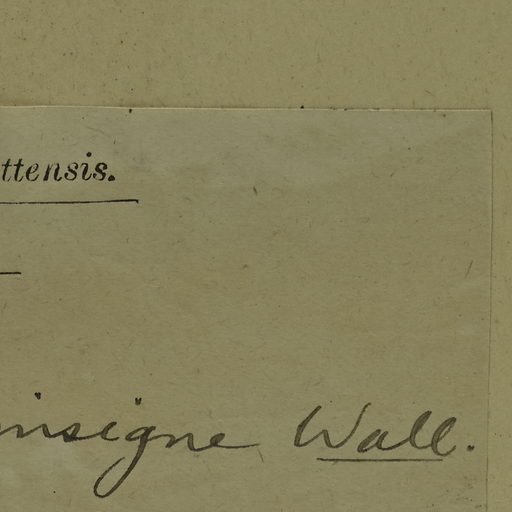 ttensis.
insigne Wall.